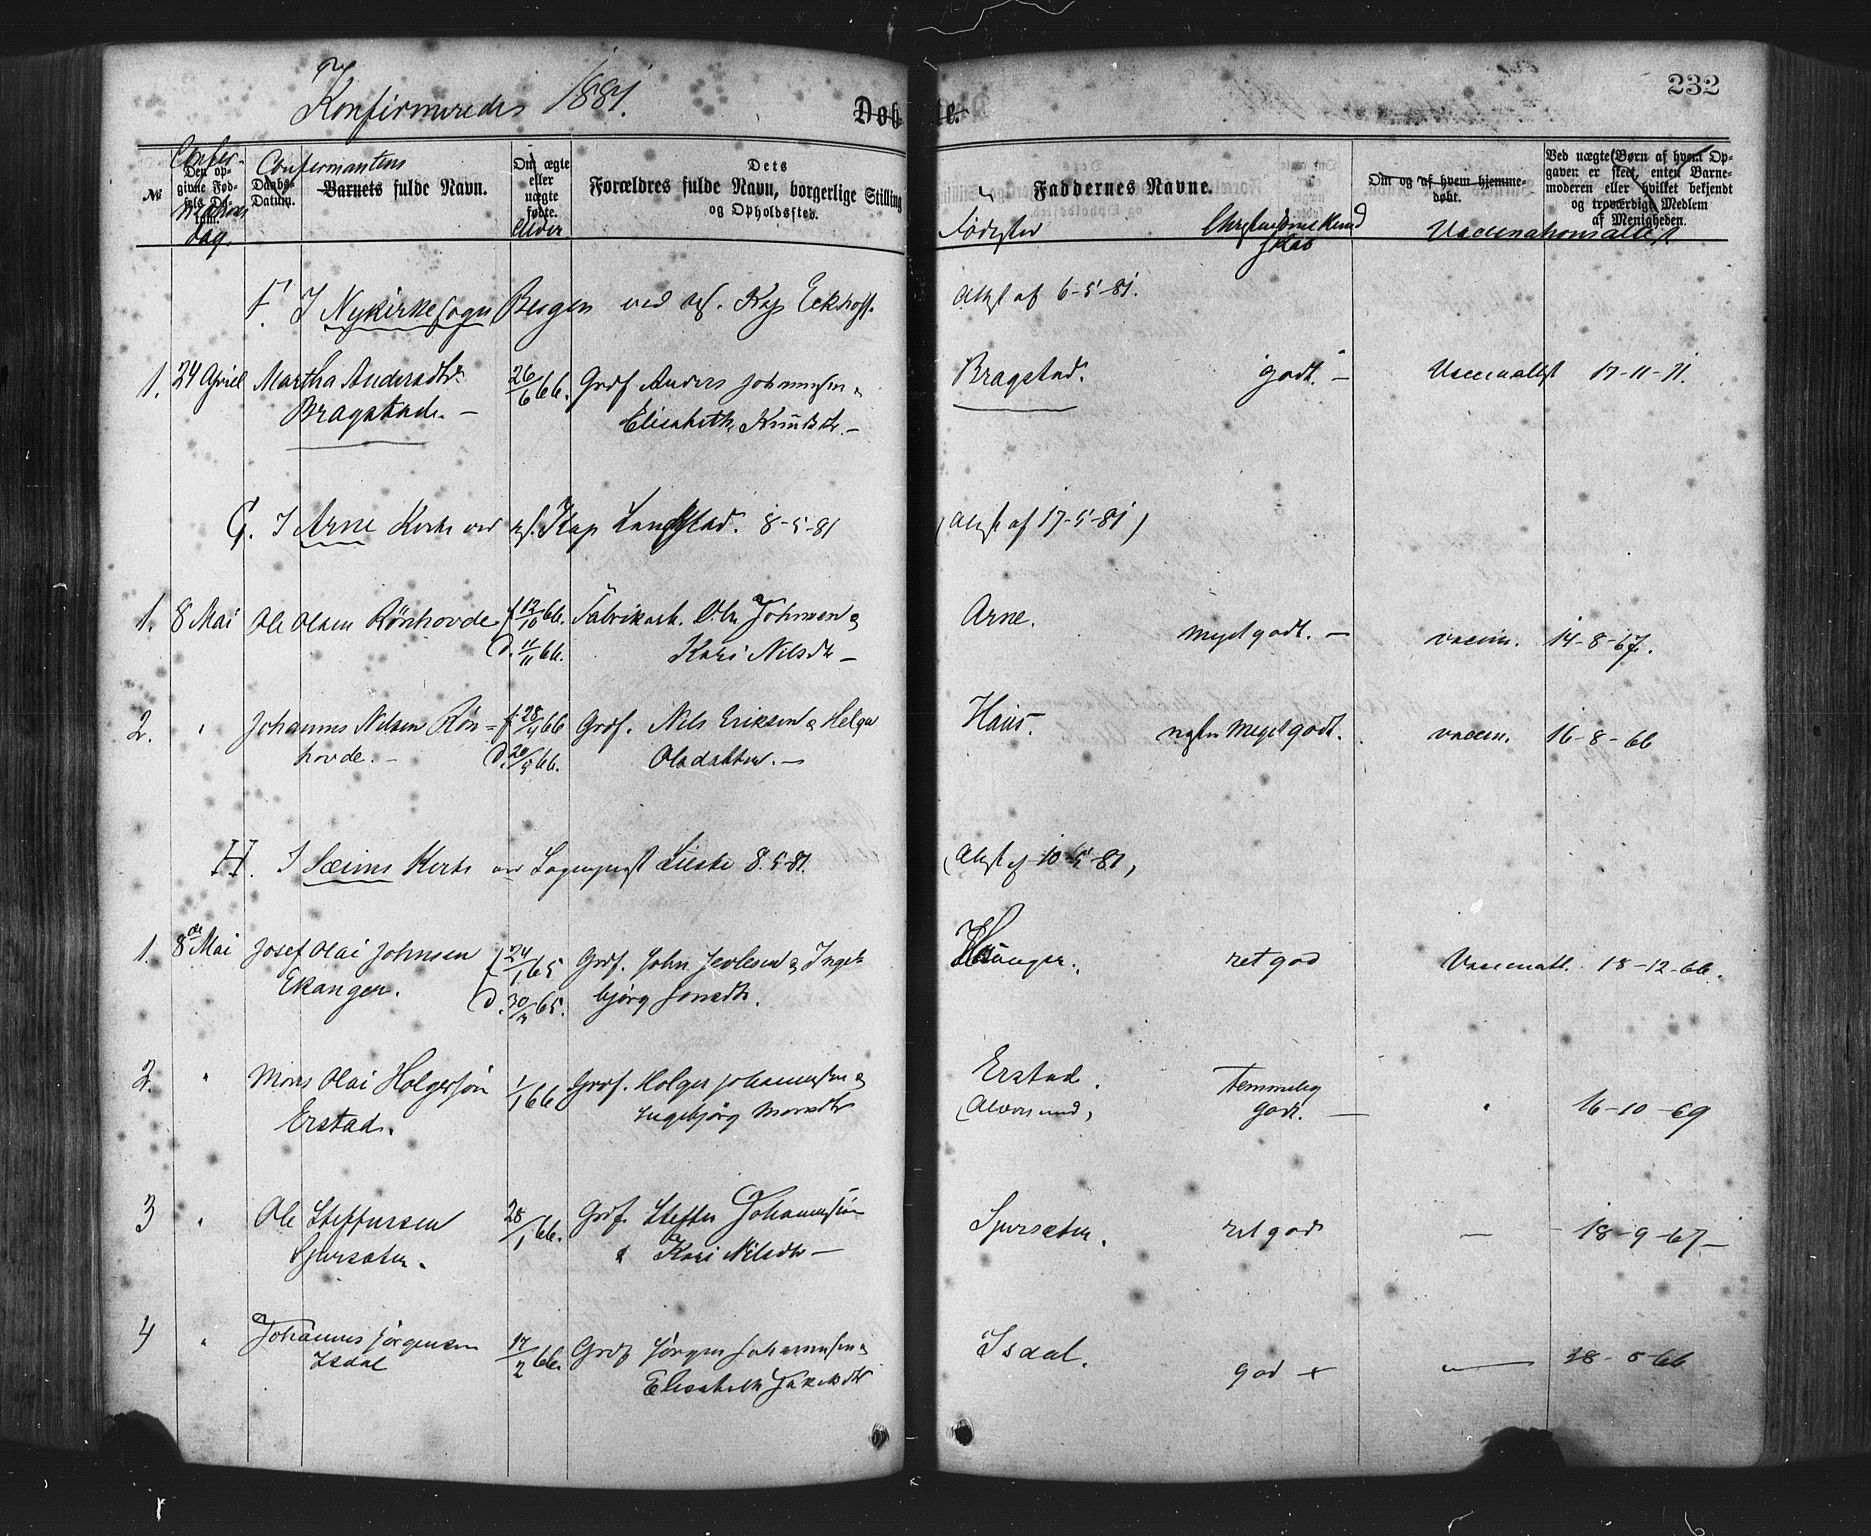 Konfirmerede 1881.
Døb te.
232
Confir-
mations
dag.
№
Den op-
givne Fød-
sels Da-
tum.
Daabs-
Datum.
Confirmantens
Barnets fulde Navn.
Om ægte
eller
uægte
fødte.
Alder
Dets
Forældres fulde Navn, borgerlige Stilling
og Opholdssted.
Faddernes Navne.
Fødested
Christendomskund
skab
Om og af hvem hjemme-
døbt.
Vaccinationsattest
Ved uægte Børn af hvem Op-
gaven er skeet, enten Barne-
moderen eller hvilket bekjendt
og troværdigt Medlem
af Menigheden.
F. I Nykirkesogn Bergen ved res. Kap Eckhoff. Attst af 6-5-81.
1. 24 April Martha Andersdtr 26/6 66. Grdf Anders Johannesen & Bragstad. godt. – Vaccinattst 17-11-71.
Bragstad. – Elisabeth Knudsdtr. –
G. I Arne Kirke ved res. Kap Landstad. 8-5-81 (Attst af 17-5-81)
1. 8 Mai Ole Olsen Rönhovde f 12/10 66. Fabrikarb. Ole Johnsen & Arne. meget godt. – vaccin. 14-8-67.
D. 4/11 66. Kari Nilsdtr –
2. " Johannes Nilsen Rön- f. 28/4 66 Grdf. Nils Eriksen & Helga Haus. meget godt. vaccin. 16-8-66
hovde. – D. 20/5 66. Olsdatter. –
H. I Sæims Kirke ved Sogneprest Lieske 8.5-81. (Attst af 10-5-81)
1. 8de Mai Josef Olai Johnsen f 24/1 65 Grdf. John &  Ingeb ret god Vaccinatt. 18-12-66.
Ekanger. D. 30/4 65. björg Jonsdtr.
2. " Mons Olai Holgersön 1/1 66 Grdf. Holger Johannesen & Erstad. Temmelig " 16-10-69
Erstad. Ingebjörg Monsdtr (Alversund) godt. –
3 " Ole Steffensen 28/1 66. Grdf. Steffen Johannesön Sjursæter. ret godt – – 18-9-67. –
Sjursæter. & Kari Nilsdtr –
4 " Johannes Jörgensen 17/2 66. Grdf Jörgen Johannesen & Isdal. god + –
Isdal Elisabeth